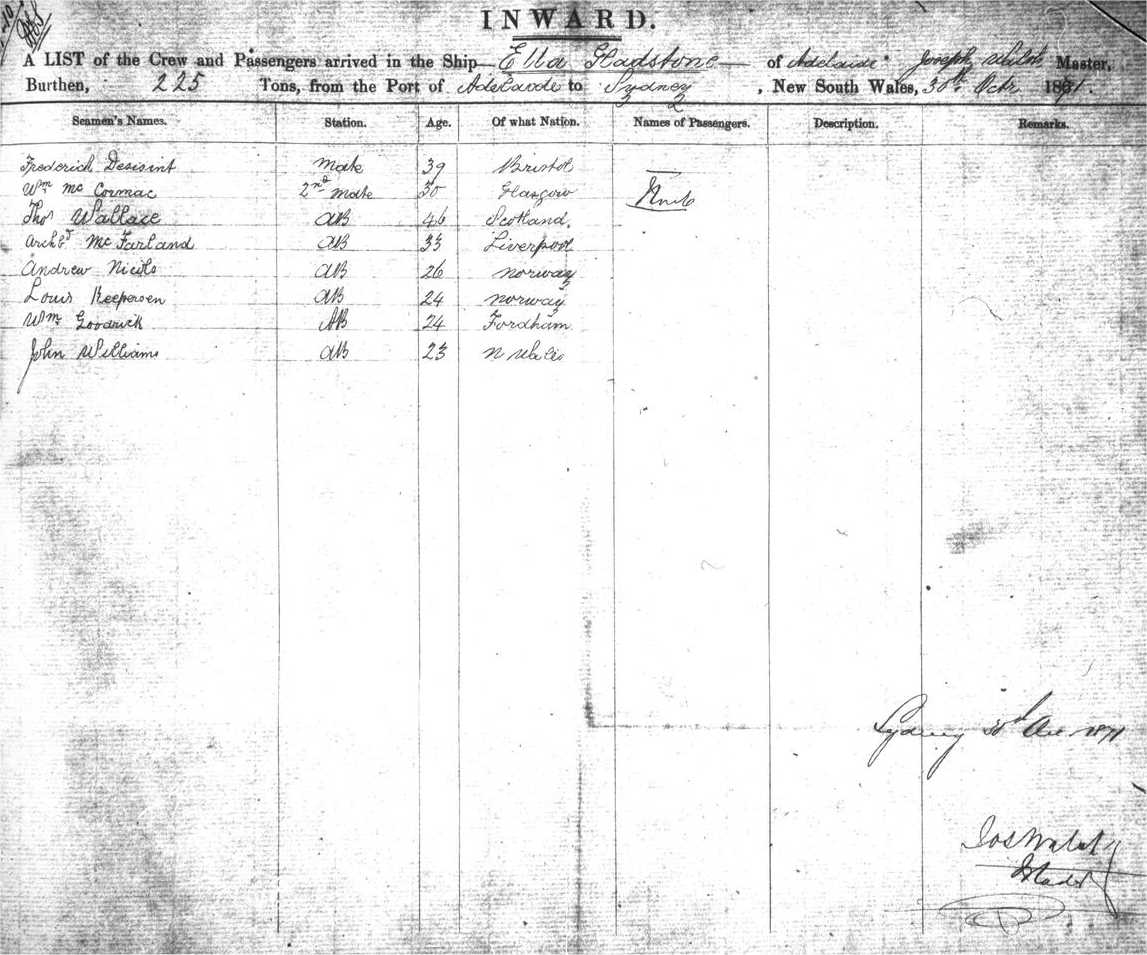 INWARD.
A LIST of the Crew and Passengers arrived in the Ship Ella Gladstone of Adelaide Joseph Walsh Master,
Burthen, 225 Tons, from the Port of Adelaide to Sydney, New South Wales, 30th Octr 1871.
Seamen's Names. Station. Age. Of what Nation. Names of Passengers. Description. Remarks.
Frederick Desisint Mate 39 Bristol
Wm Mc Cormac 2nd Mate 30 Glasgow
Thos Wallace AB 46 Scotland.
Archbd Mc Farland AB 33 Liverpool
Andrew Nicols AB 26 Norway
Louis Keepersen AB 24 Norway
Wm Goodrick AB 24 Fordham
John Williams AB 23 N Wales
Sydney 30th 1871
Jos Walsh
Master